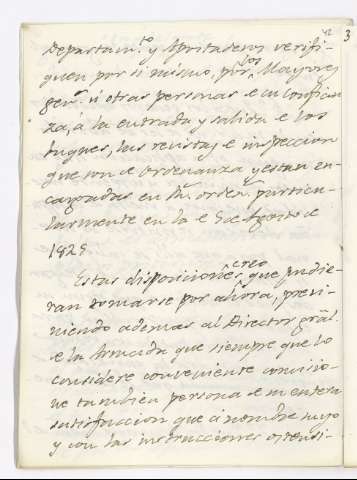 42 3
Departam.to y Apostaderos verifi-
quen por si mismo, por los Mayores
gen.s ú otras personas e su confian
za, á la entrada y salida e los
buques, las revistas e inspeccion
que son e Ordenanza y estan en-
cargadas en orden. particu-
larmente en la e 5 e Agosto e
1825.
Estas disposiciones creo que pudie-
ran tomarse por ahora, previ-
niendo ademas al Director gral
e la Armada que siempre que lo
considere conveniente comisio-
ne tambien persona e su entera
satisfaccion que á nombre suyo
y con las instrucciones ostensi-